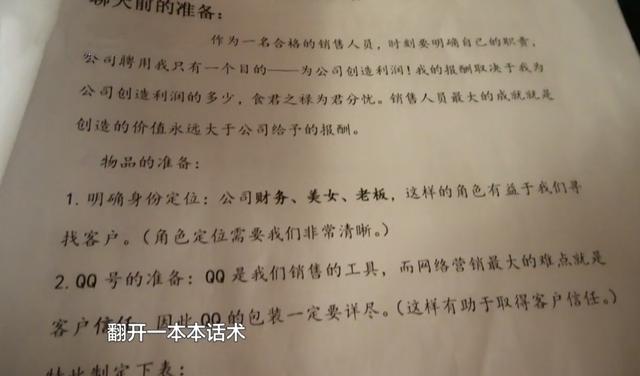 聊天前的准备：
作为一名合格的销售人员，时刻要明确自己的职责，
公司聘用我只有一个目的——为公司创造利润！我的报酬取决于我为
公司创造利润的多少，食君之禄为君分忧。销售人员最大的成就就是
创造的价值永远大于公司给予的报酬。
物品的准备：
1. 明确身份定位：公司财务、美女、老板，这样的角色有益于我们寻
找客户。（角色定位需要我们非常清晰。）
2. QQ 号的准备：QQ 是我们销售的工具，而网络营销最大的难点就是
客户信任，因此 QQ 的包装一定要详尽。（这样有助于取得客户信任。）
翻开一本本话术
特此制定下表：